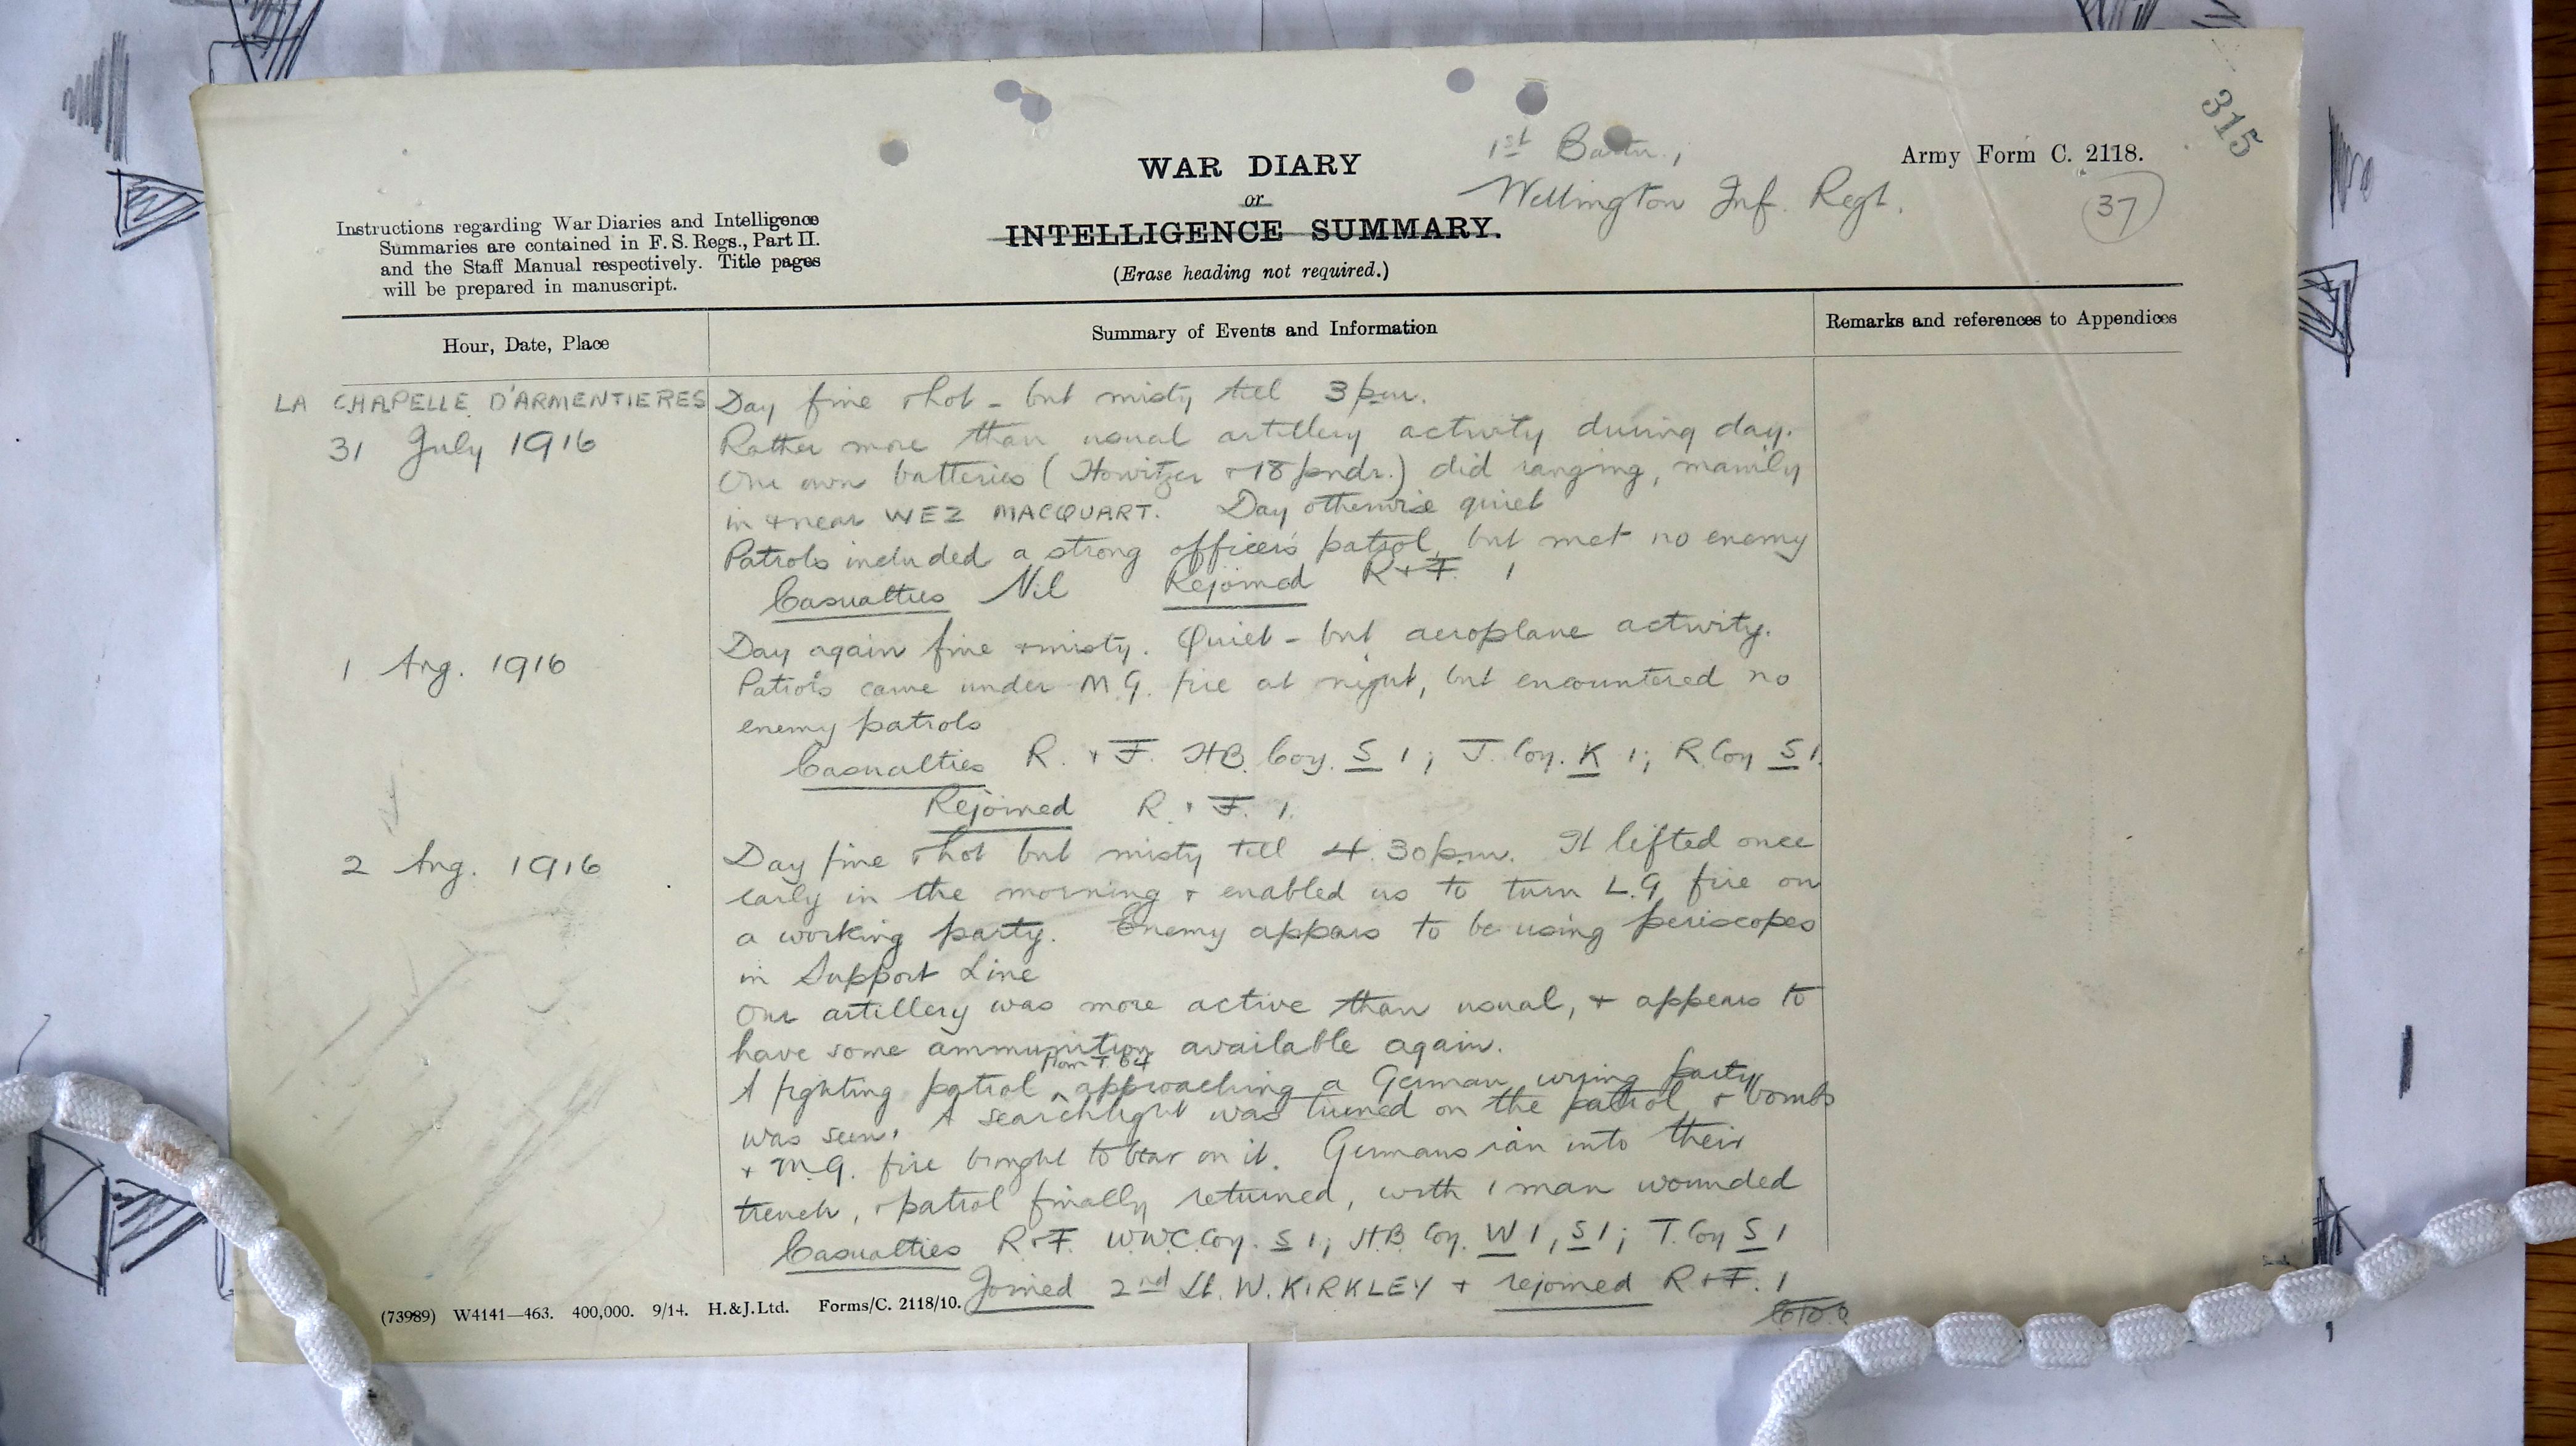 315
1st Battn.,
Wellington Inf. Regt.
Army Form C. 2118.
37
WAR DIARY
or
INTELLIGENCE SUMMARY.
(Erase heading not required.)
Instructions regarding War Diaries and Intelligence
Summaries are contained in F. S. Regs., Part II.
and the Staff Manual respectively. Title pages
will be prepared in manuscript.
Hour, Date, Place
Summary of Events and Information
Remarks and references to Appendices
LA CHAPELLE D'ARMENTIERES
31 July 1916
Day fine & hot - but misty till 3 p.m.
Rather more than usual artillery activity during day.
Our own batteries (Howitzer & 18 pndr.) did ranging, mainly
in & near WEZ MACQUART. Day otherwise quiet
Patrols included a strong officer's patrol, but met no enemy
Casualties Nil Rejoined R & F. 1
1 Aug. 1916
Day again fine & misty. Quiet - but aeroplane activity.
Patrols came under M.G. fire at night, but encountered no
enemy patrols
Casualties R. & F. H.B. Coy. S 1; T. Coy. K 1; R Coy S 1.
Rejoined R. & F. 1.
2 Aug. 1916
Day fine & hot but misty till 4.30 p.m. It lifted once
early in the morning & enabled us to turn L.G fire on
a working party. Enemy appears to be using periscopes
in Support Line
Our artillery was more active than usual, & appears to
have some ammunition available again.
from T. 64
A fighting patrol ^ approaching a German wiring party
was seen. A searchlight was turned on the patrol & bombs
& M.G. fire brought to bear on it. Germans ran into their
trench, & patrol finally returned, with 1 man wounded
Casualties R & F. W.W.C. Coy. S 1; H.B. Coy. W 1, S 1; T. Coy S 1
Joined 2nd Lt. W. KIRKLEY & rejoined R & F. 1
(73989) W4141—463. 400,000. 9/14. H. & J. Ltd. Forms/C. 2118/10.